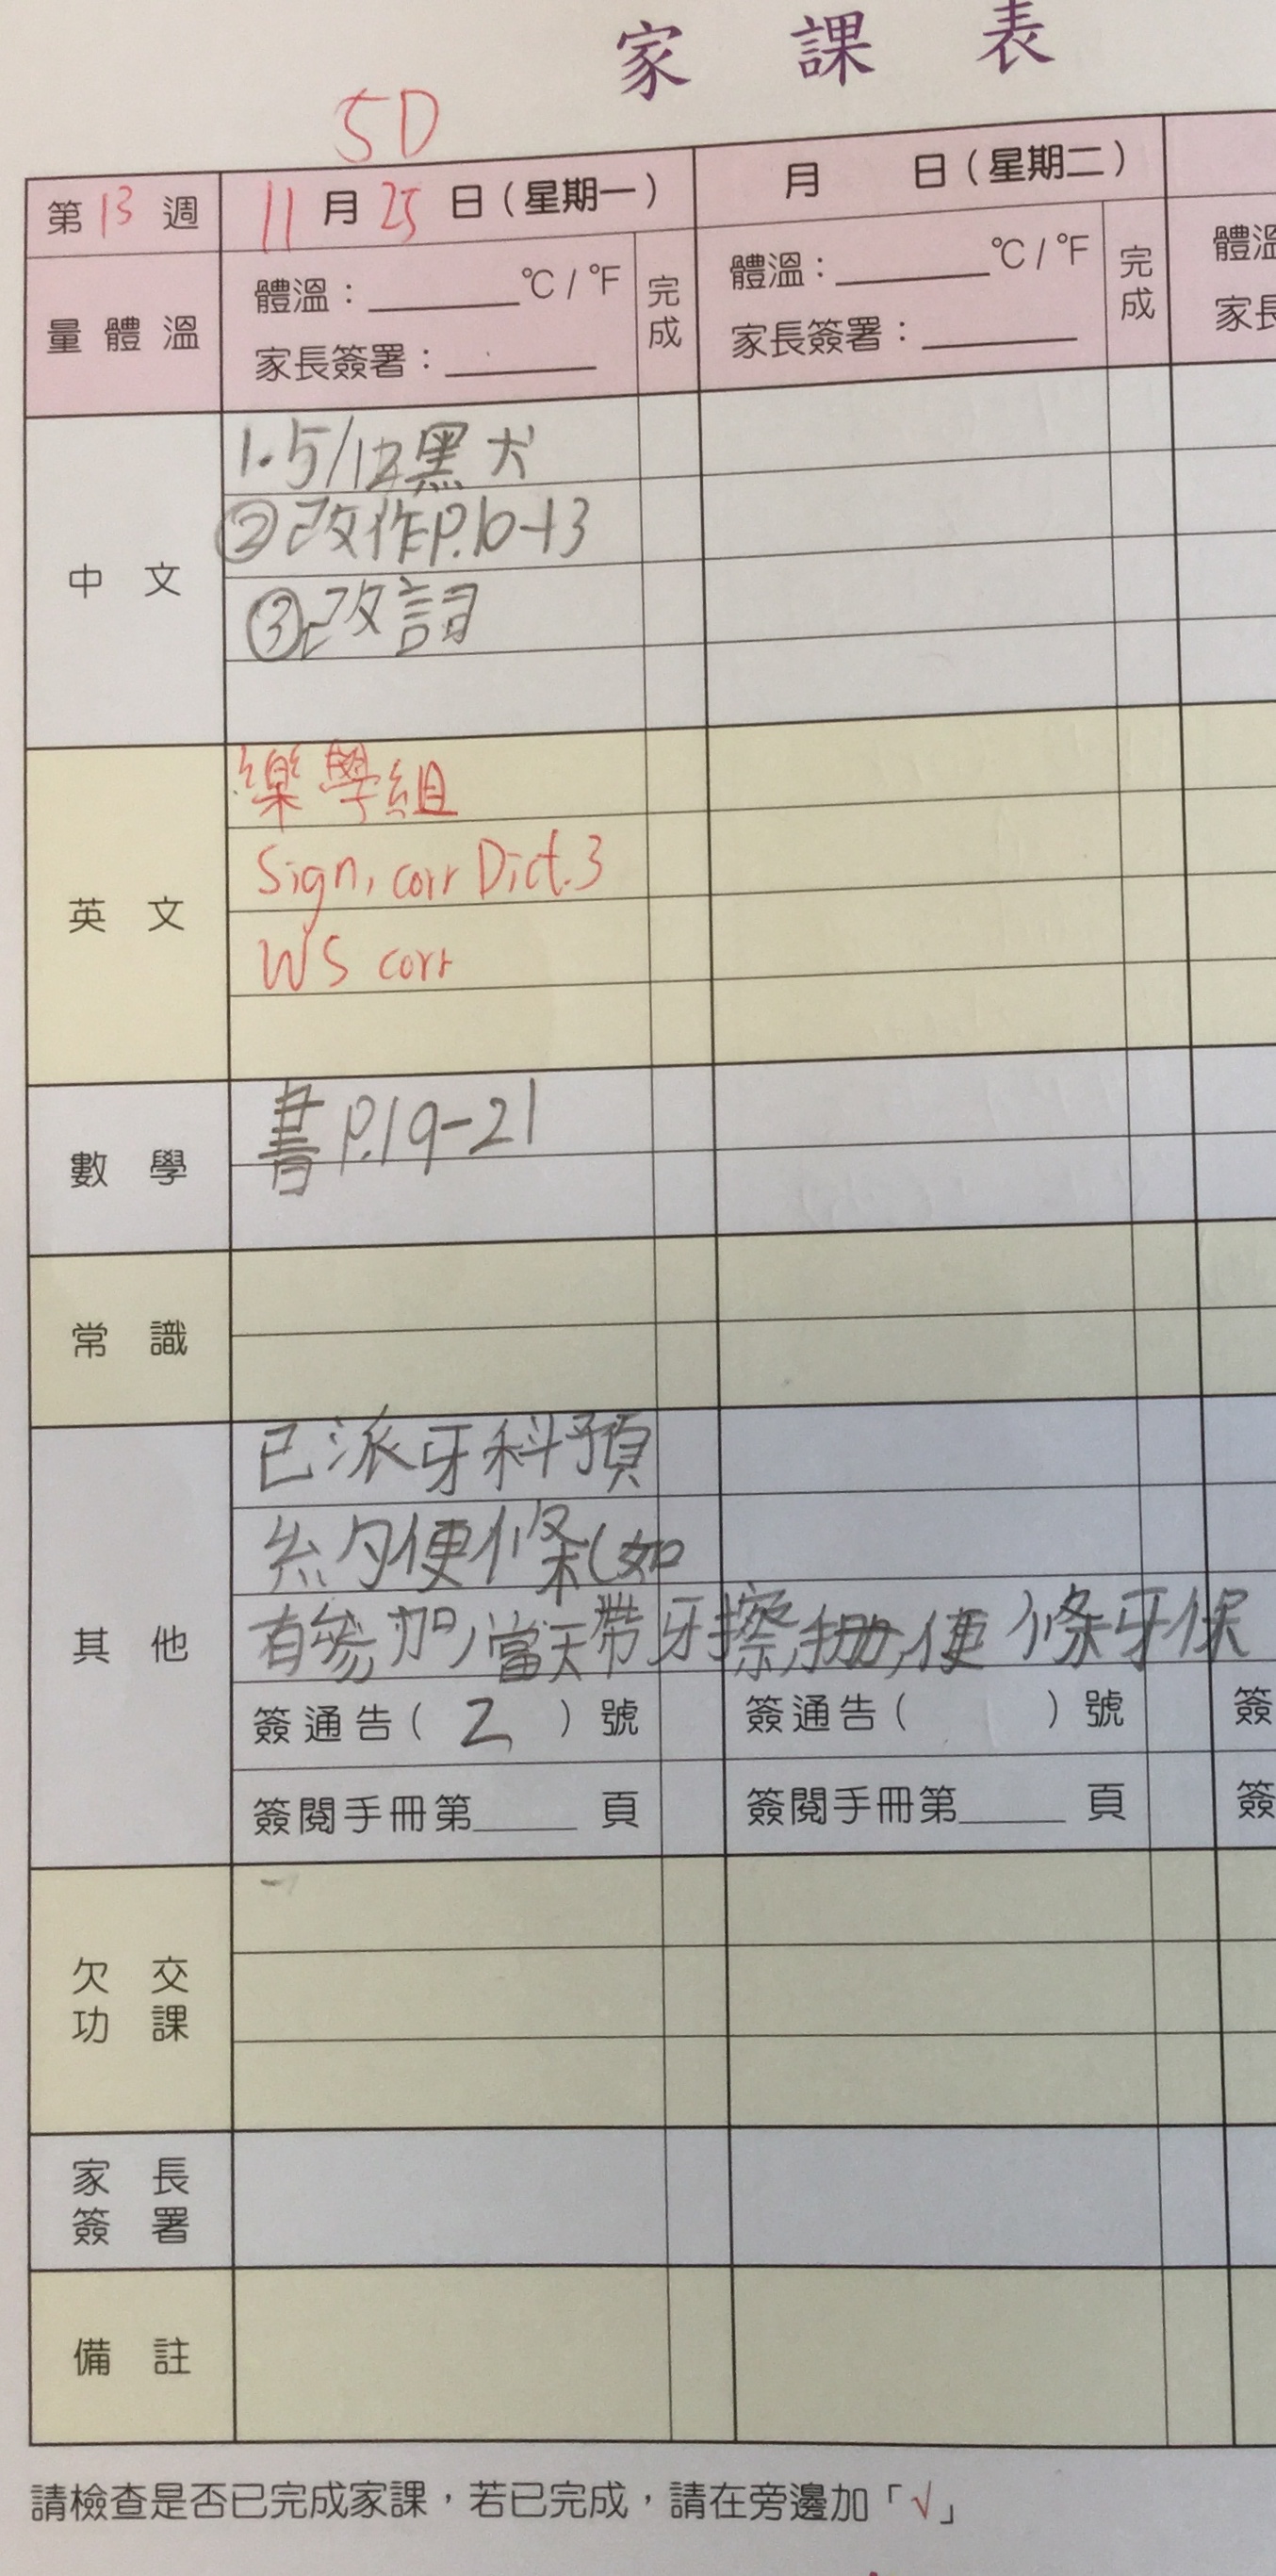 家課表
5D
第13週 11月25日（星期一） 月 日（星期二）
量體溫 體溫：______°C / °F 完成 體溫：______°C / °F 完成 體溫
家長簽署：______ 家長簽署：______ 家長
中文 1.5/12黑犬
②改作P.10-13
③改詞
英文 樂學組
Sign, corr Dict.3
WS corr
數學 書P.19-21
常識
其他 已派牙科預
約便條(如
有參加,當天帶牙擦,手冊,便條牙保
簽通告（2）號 簽通告（ ）號 簽
簽閱手冊第____頁 簽閱手冊第____頁 簽
欠交功課
家長簽署
備註
請檢查是否已完成家課，若已完成，請在旁邊加「√」